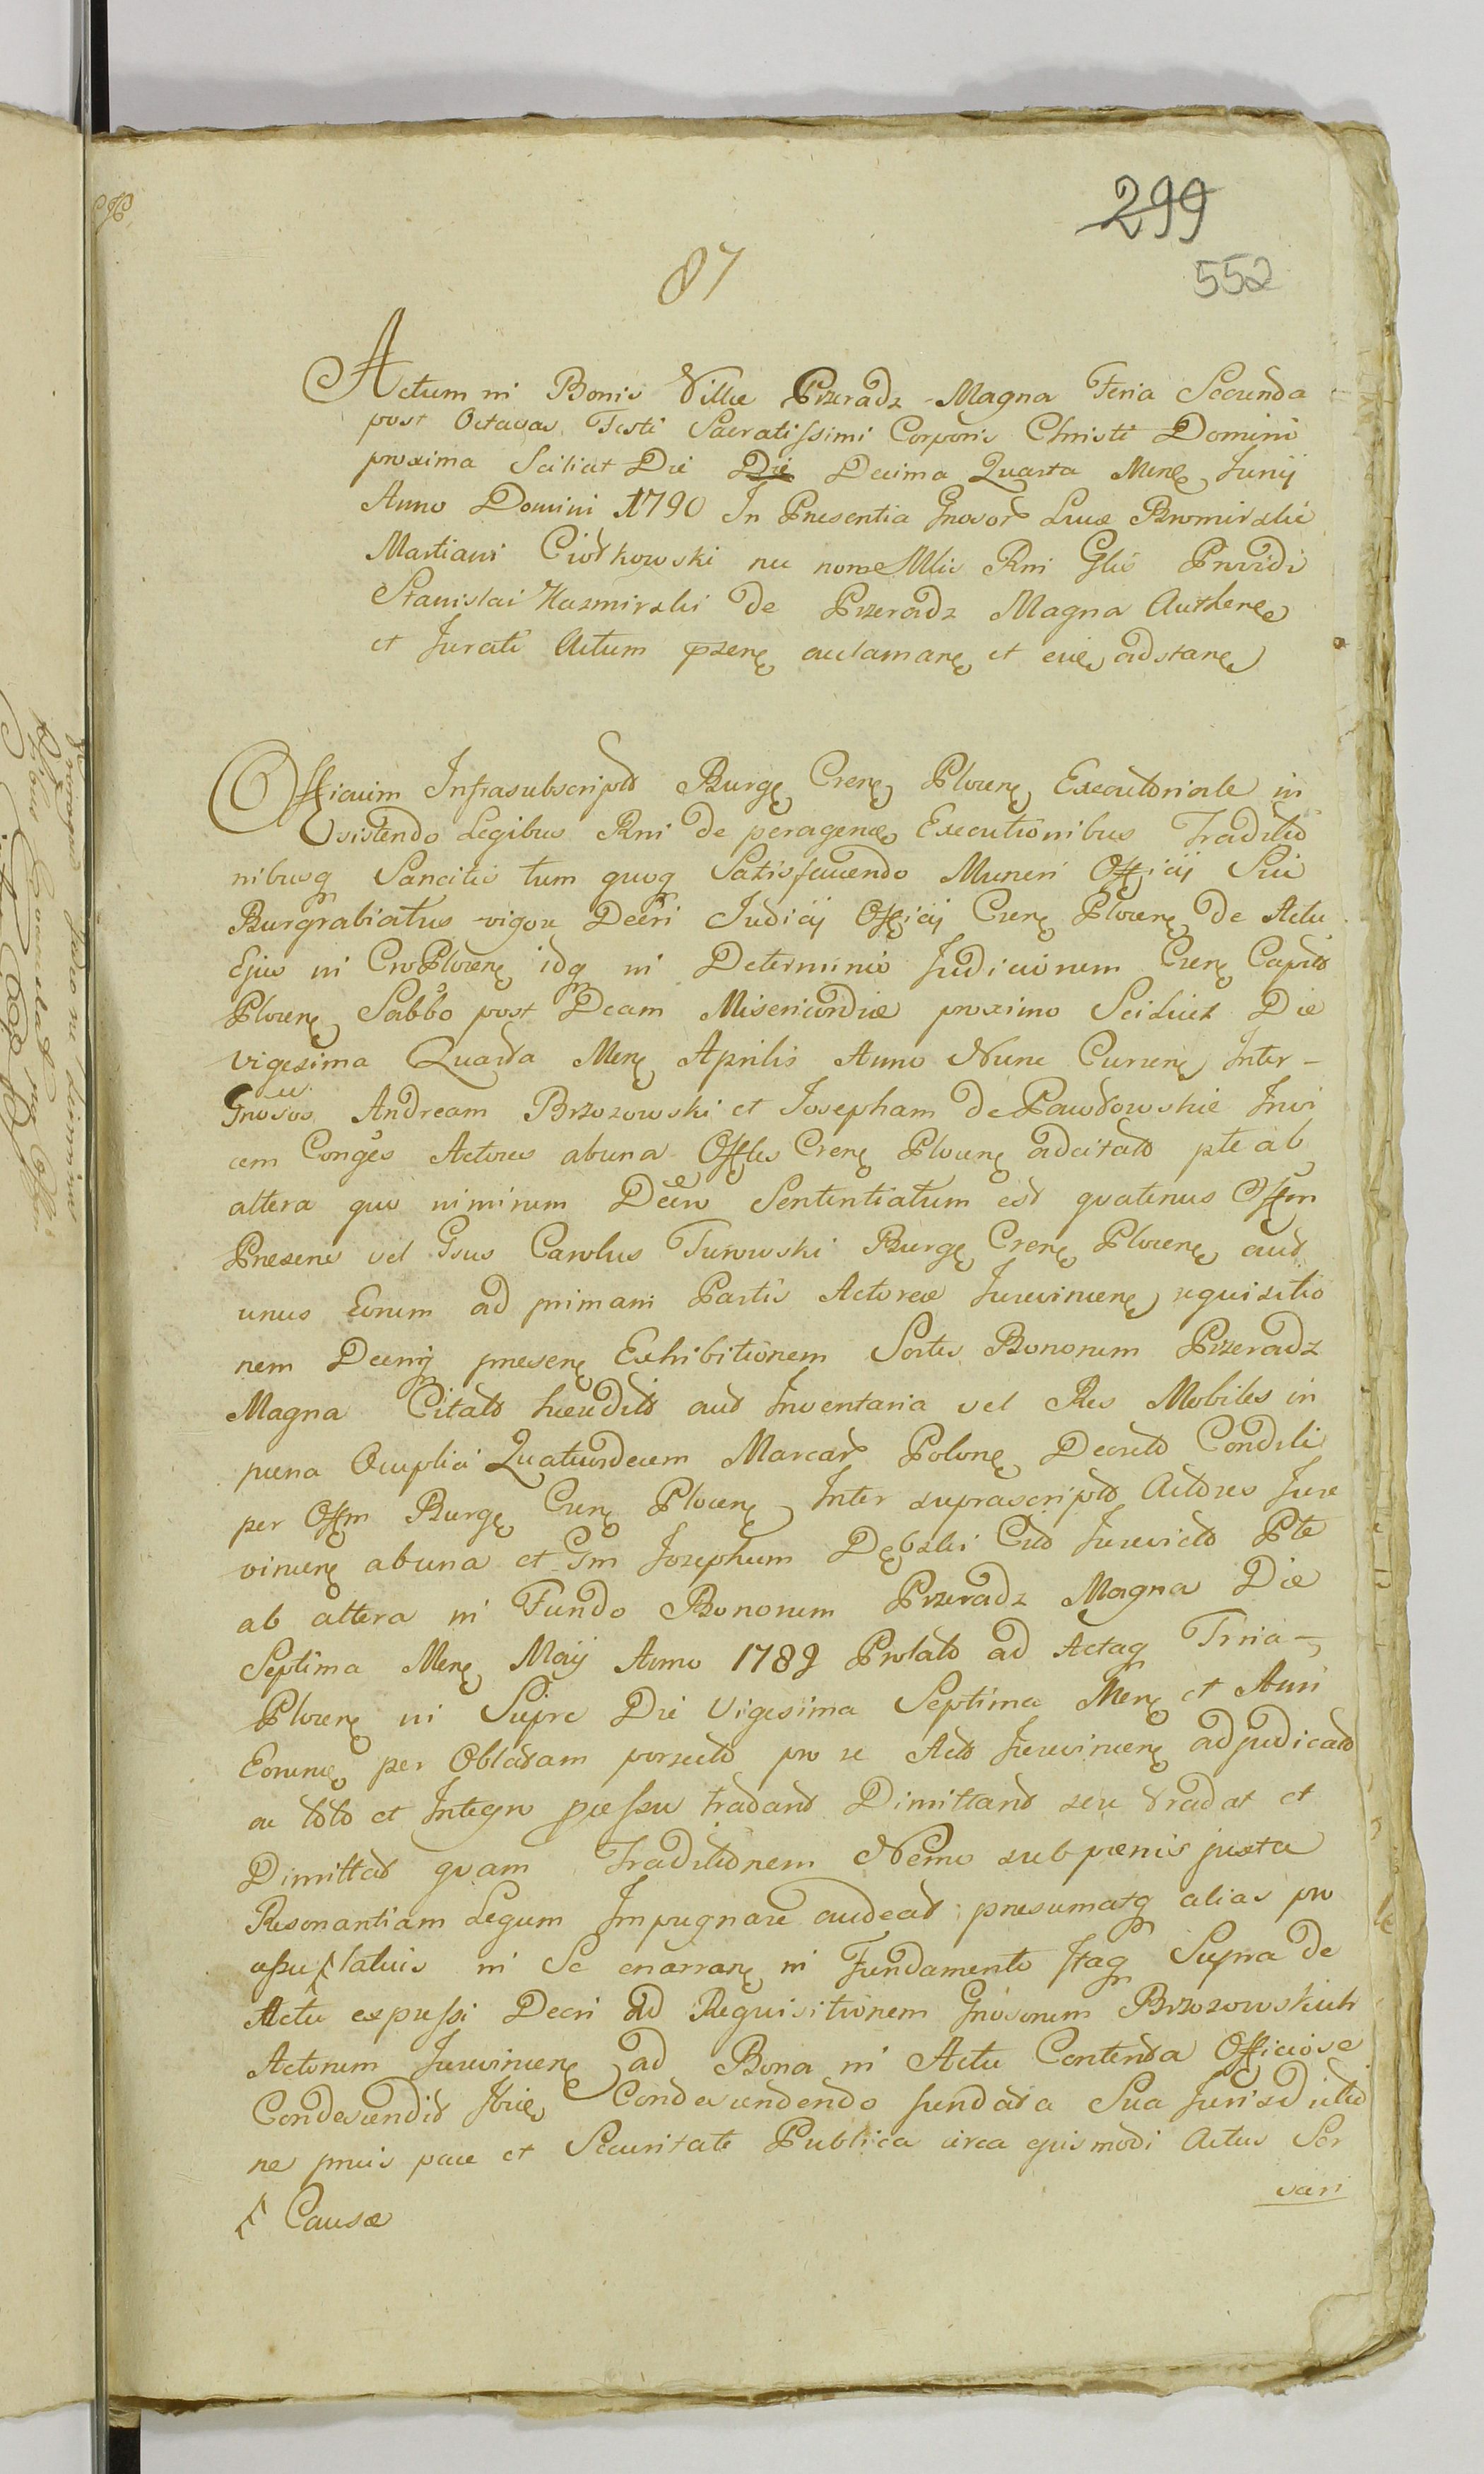 299
552
87
Actum in Bonis Villæ Przeradz Magna Feria Secunda
post Octavas Festi Sacratissimi Corporis Christi Domini
proxima Scilicet Die Die Decima Quarta Mens Junij
Anno Domini 1790 In Presentia Gnosor Lucæ Bromirskie
Martiani Ciółkowski nec none Mlis Rni Glis Providi
Stanislai Kazmirski de Przeradz Magna Authen
et Jurati Actum pzen acclaman et eie adstan
Officium Infrasubscript Burg Cren Plocen Executoriale in
sistendo Legibus Rni de peragen Executionibus Traditio
nibusq Sancitis tum quoq Satisfaciendo Muneri Officij Sui
Burgrabiatus vigore Decri Judicij Officij Cren Plocen de Actu
Ejus in CroPlocen idq in Determinio Judiciorum Cren Capit
Plocen Sabbo post Dcam Misericordiæ proximo Scilicet Die
vigesima Quarta Men Aprilis Anno Nunc Curren Inter-
Gnosos Andream Brzozowski et Josepham de Pawłowskie Invi
cem Conges Actores abuna Offles Cren Plocen adcitat pte ab
altera quo nimirum Decro Sententiatum est quatenus Offm
Presens vel Gsus Carolus Turowski Burg Cren Plocen aut
unus Eorum ad primam Partis Actoreæ Jurevincen requisitio
nem Decriq presen Exhibitionem Sortes Bonorum Przeradz
Magna Citat hæredit aut Inventaria vel Res Mobiles in
pæna Quatuordecem Marcar Polon Decreto Condili
per Offm Burg Cren Plocen Inter suprascript Actores Jure
vincen abuna et Gm Josephum Dębski Cit Jurevict Pte
ab altera in Fundo Bonorum Przeradz Magna Die
Septima Men Maij Anno 1789 Prolato ad Actaq Trria-
Plocen in Siepre Die Vigesima Septima Men et Anni
Eorum per Oblatam porrecto pro re Act Jurevincen adjudicat
ac toto et Integro tradant Dimittant seu tradat et
Dimittat quam Traditionem Nemo sub pænis juxta
Resonantiam Legum Impugnare audeat presumatq alias pro
latius in Se enarran in Fundamento Itaq Supra de
Actu expressi Decri Ad Requisitionem Gnosorum Brzozowskich
Actorum Jurevincen ad Bona in Actu Contenta Officiose
Condescendit Ibiq Condescendendo fundata Sua Jurisdictio
ne prius pace et Securitate Publica circa ejusmodi Actus Ser
vari
Causæ